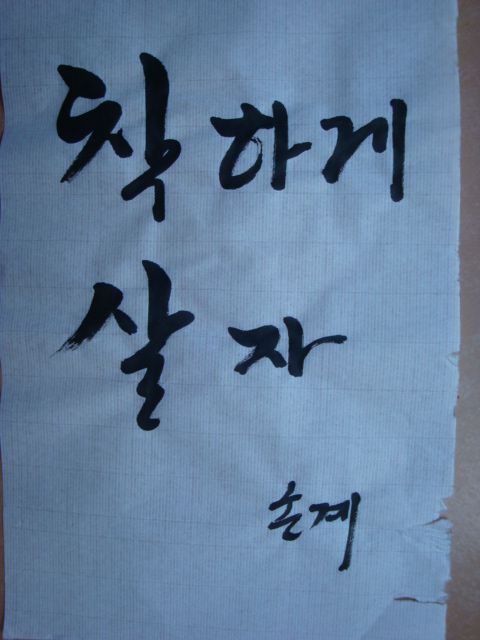 착하게
살자
손계